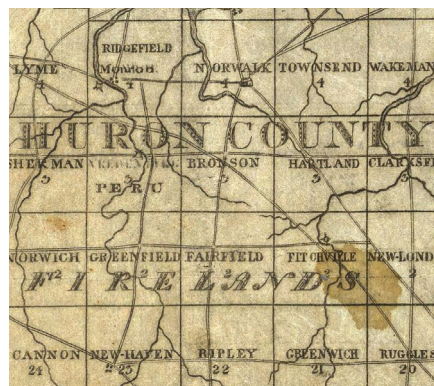 RIDGEFIELD
LYME Monroe NORWALK TOWNSEND WAKEMAN
4 4 4 4
HURON COUNTY
SHERMAN BRONSON HARTLAND CLARKSF
3 3 3 3
PERU
NORWICH GREENFIELD FAIRFIELD FITCHVILLE NEW-LOND
2 2 2 2
FIRELANDS
CANNON NEW-HAVEN RIPLEY GREENWICH RUGGLES
24 25 22 21 20